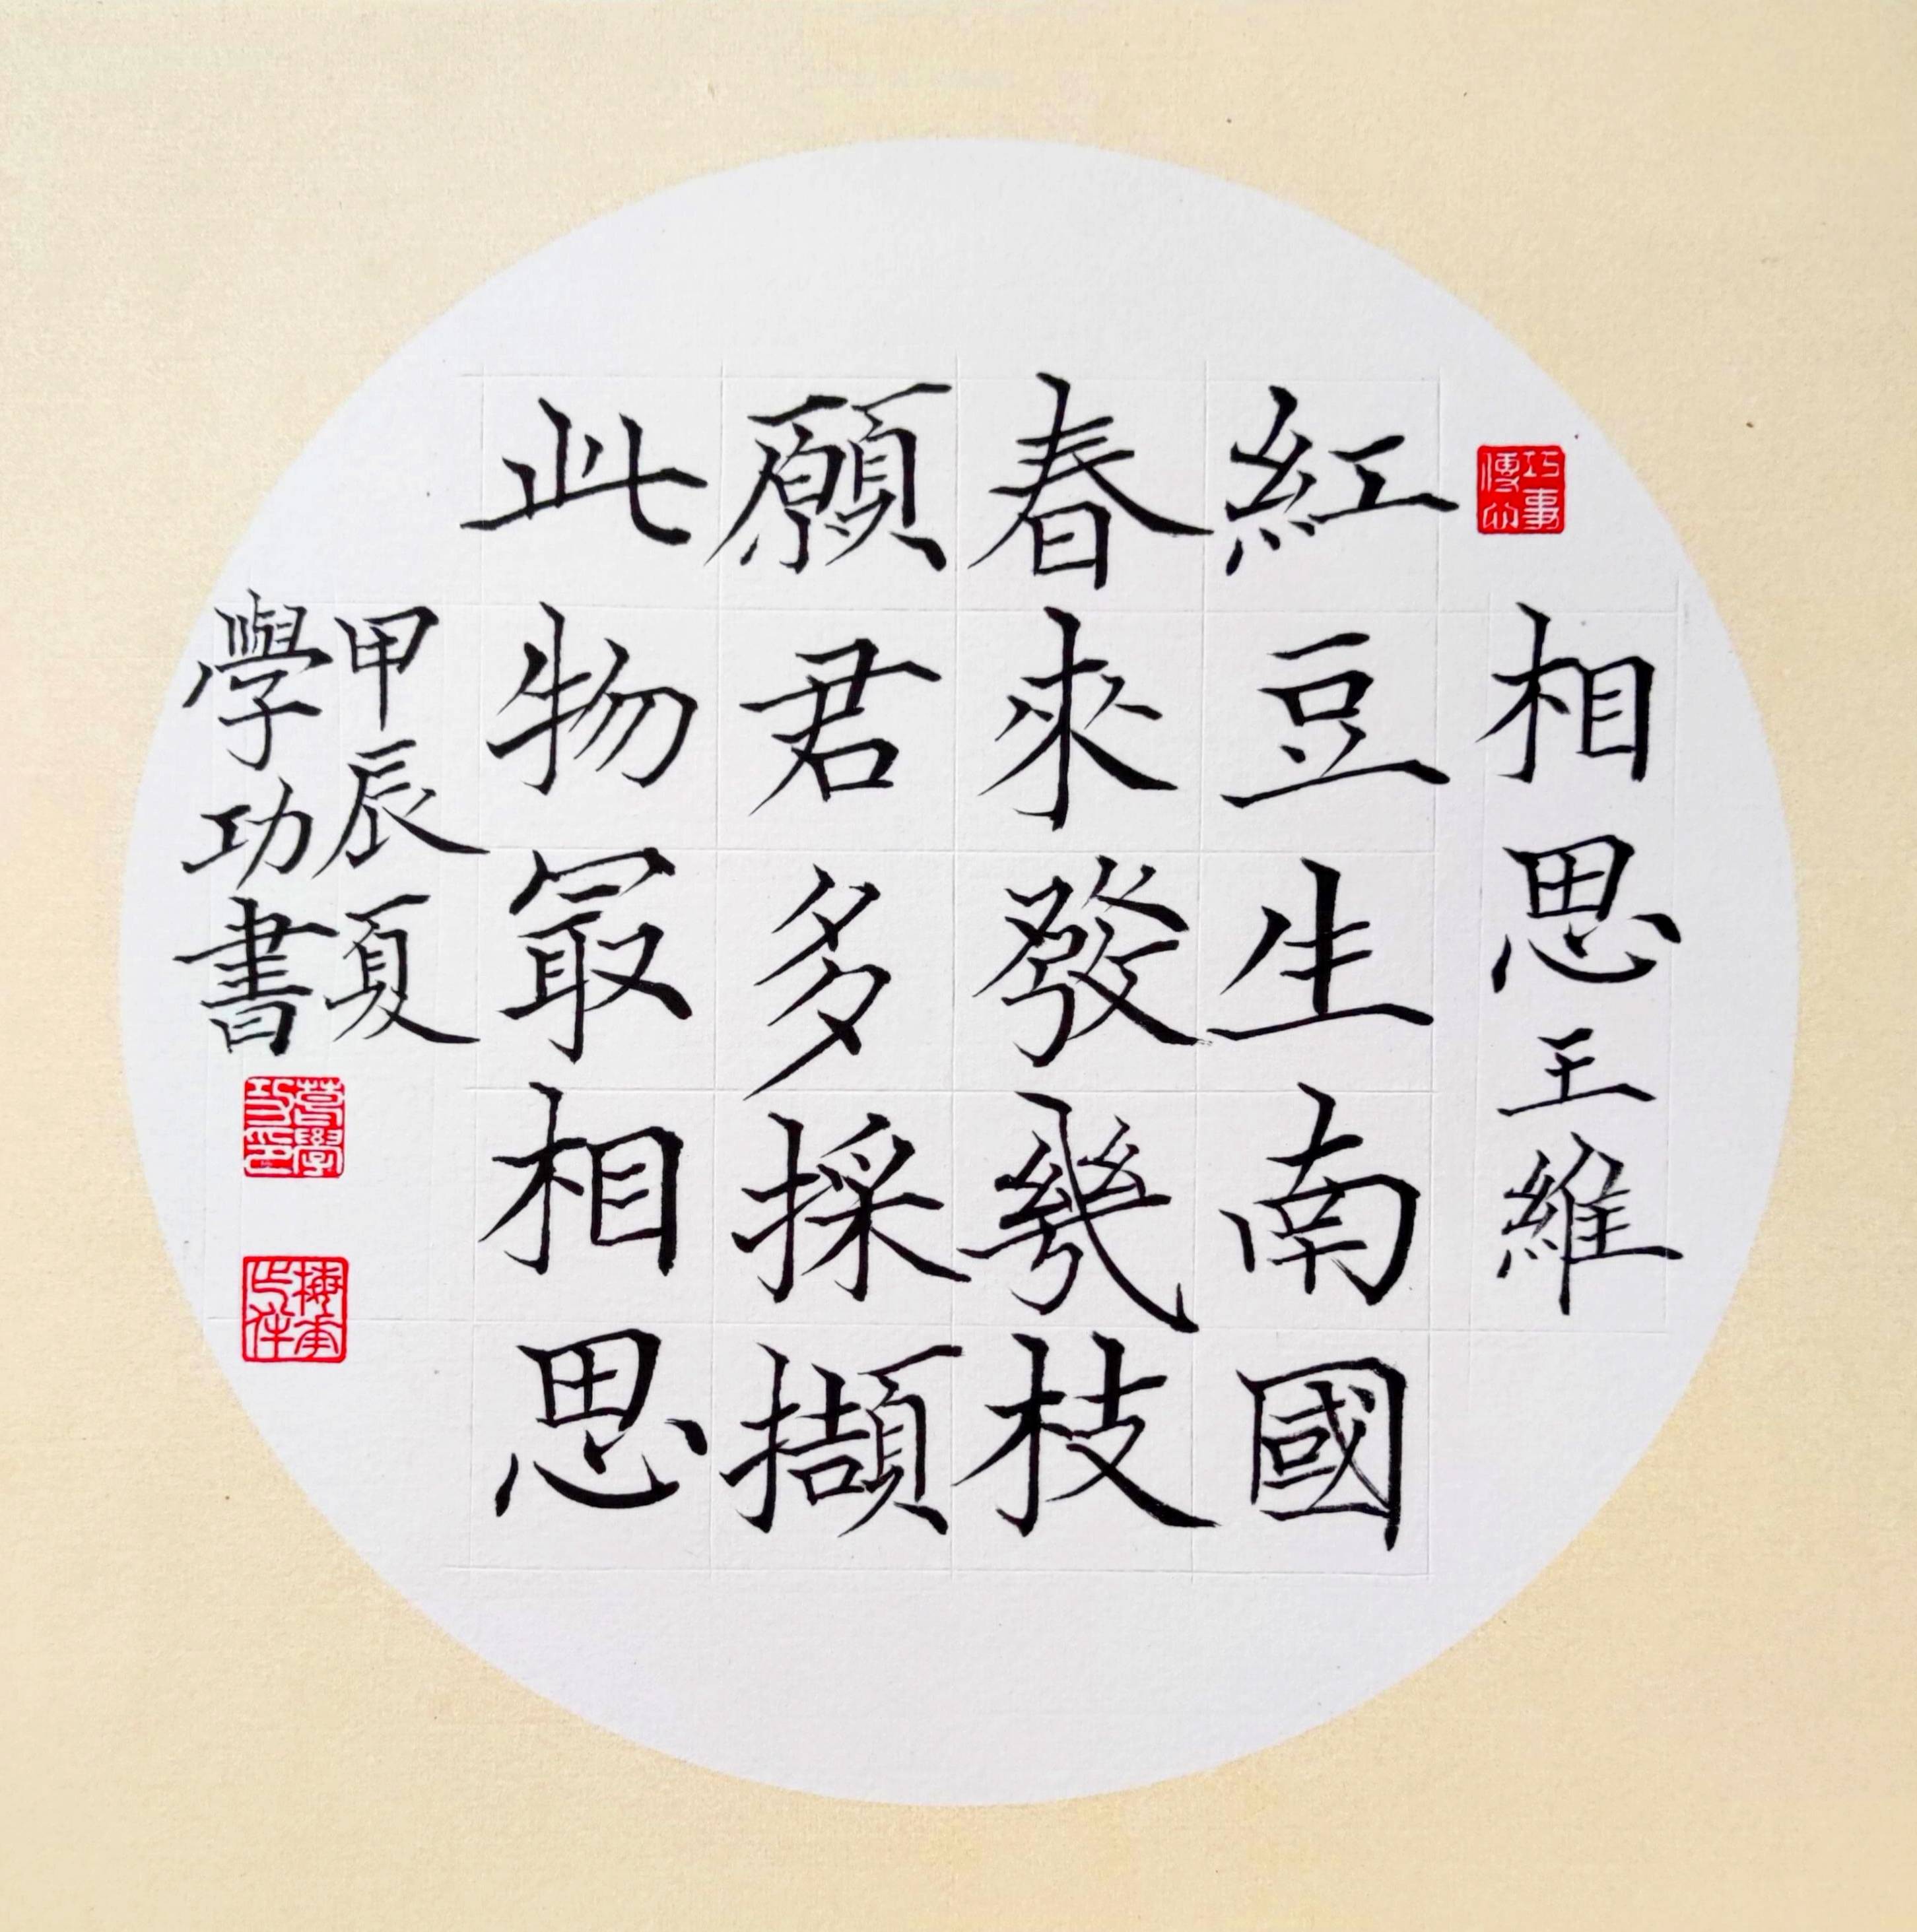 相思王維
紅豆生南國
春來發幾枝
願君多採擷
此物最相思
甲辰夏
學功書